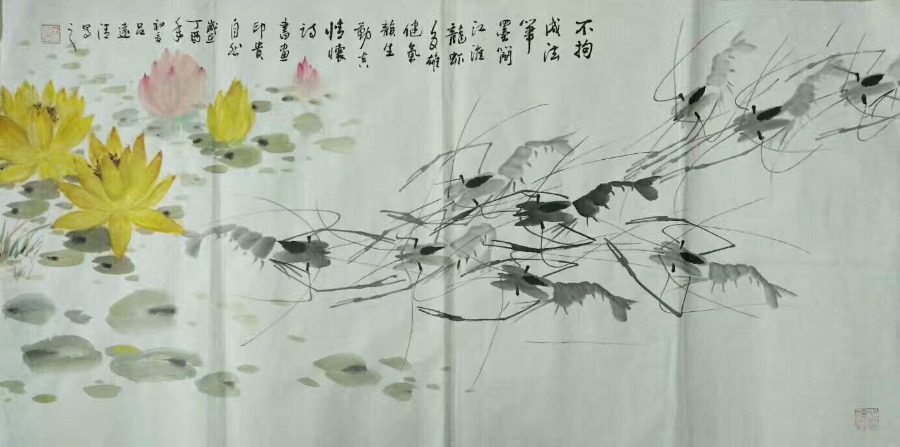 不拘
成法
笔
墨简
江淮
龙虾
又雄
健气
韵生
动真
情怀
诗
书画
印贵
自然
岁在
丁酉
年
初冬
吕
远
清
写
之